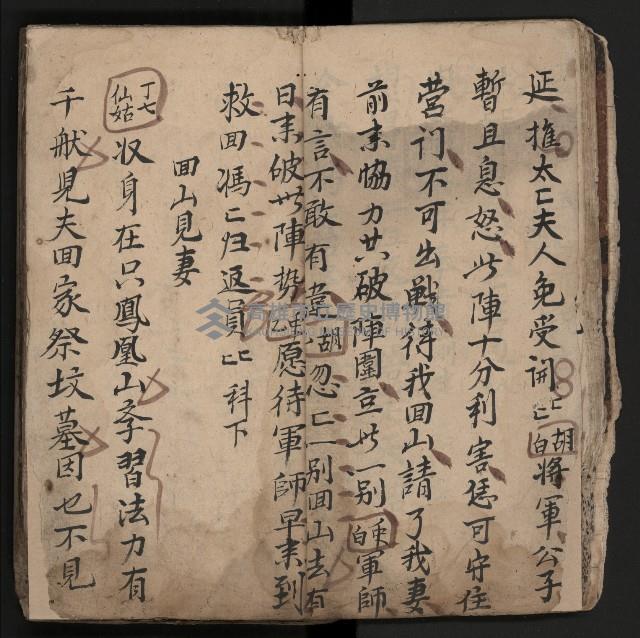 延推太匕夫人免受開匕胡白將軍公子
暫且息怒此陣十分利害恁可守住
营门不可出戰待我回山請了我妻
前来協力共破陣圍立此一別乘白軍師
有言不敢有違胡忽匕一別回山去有
日来破此陣势愿待軍師早来到
救回馮匕归返員匕科下
回山見妻
丁七仙姑收身在只鳳凰山孝習法力有
千般見夫回家祭坟墓因乜不見
高雄市立歷史博物館